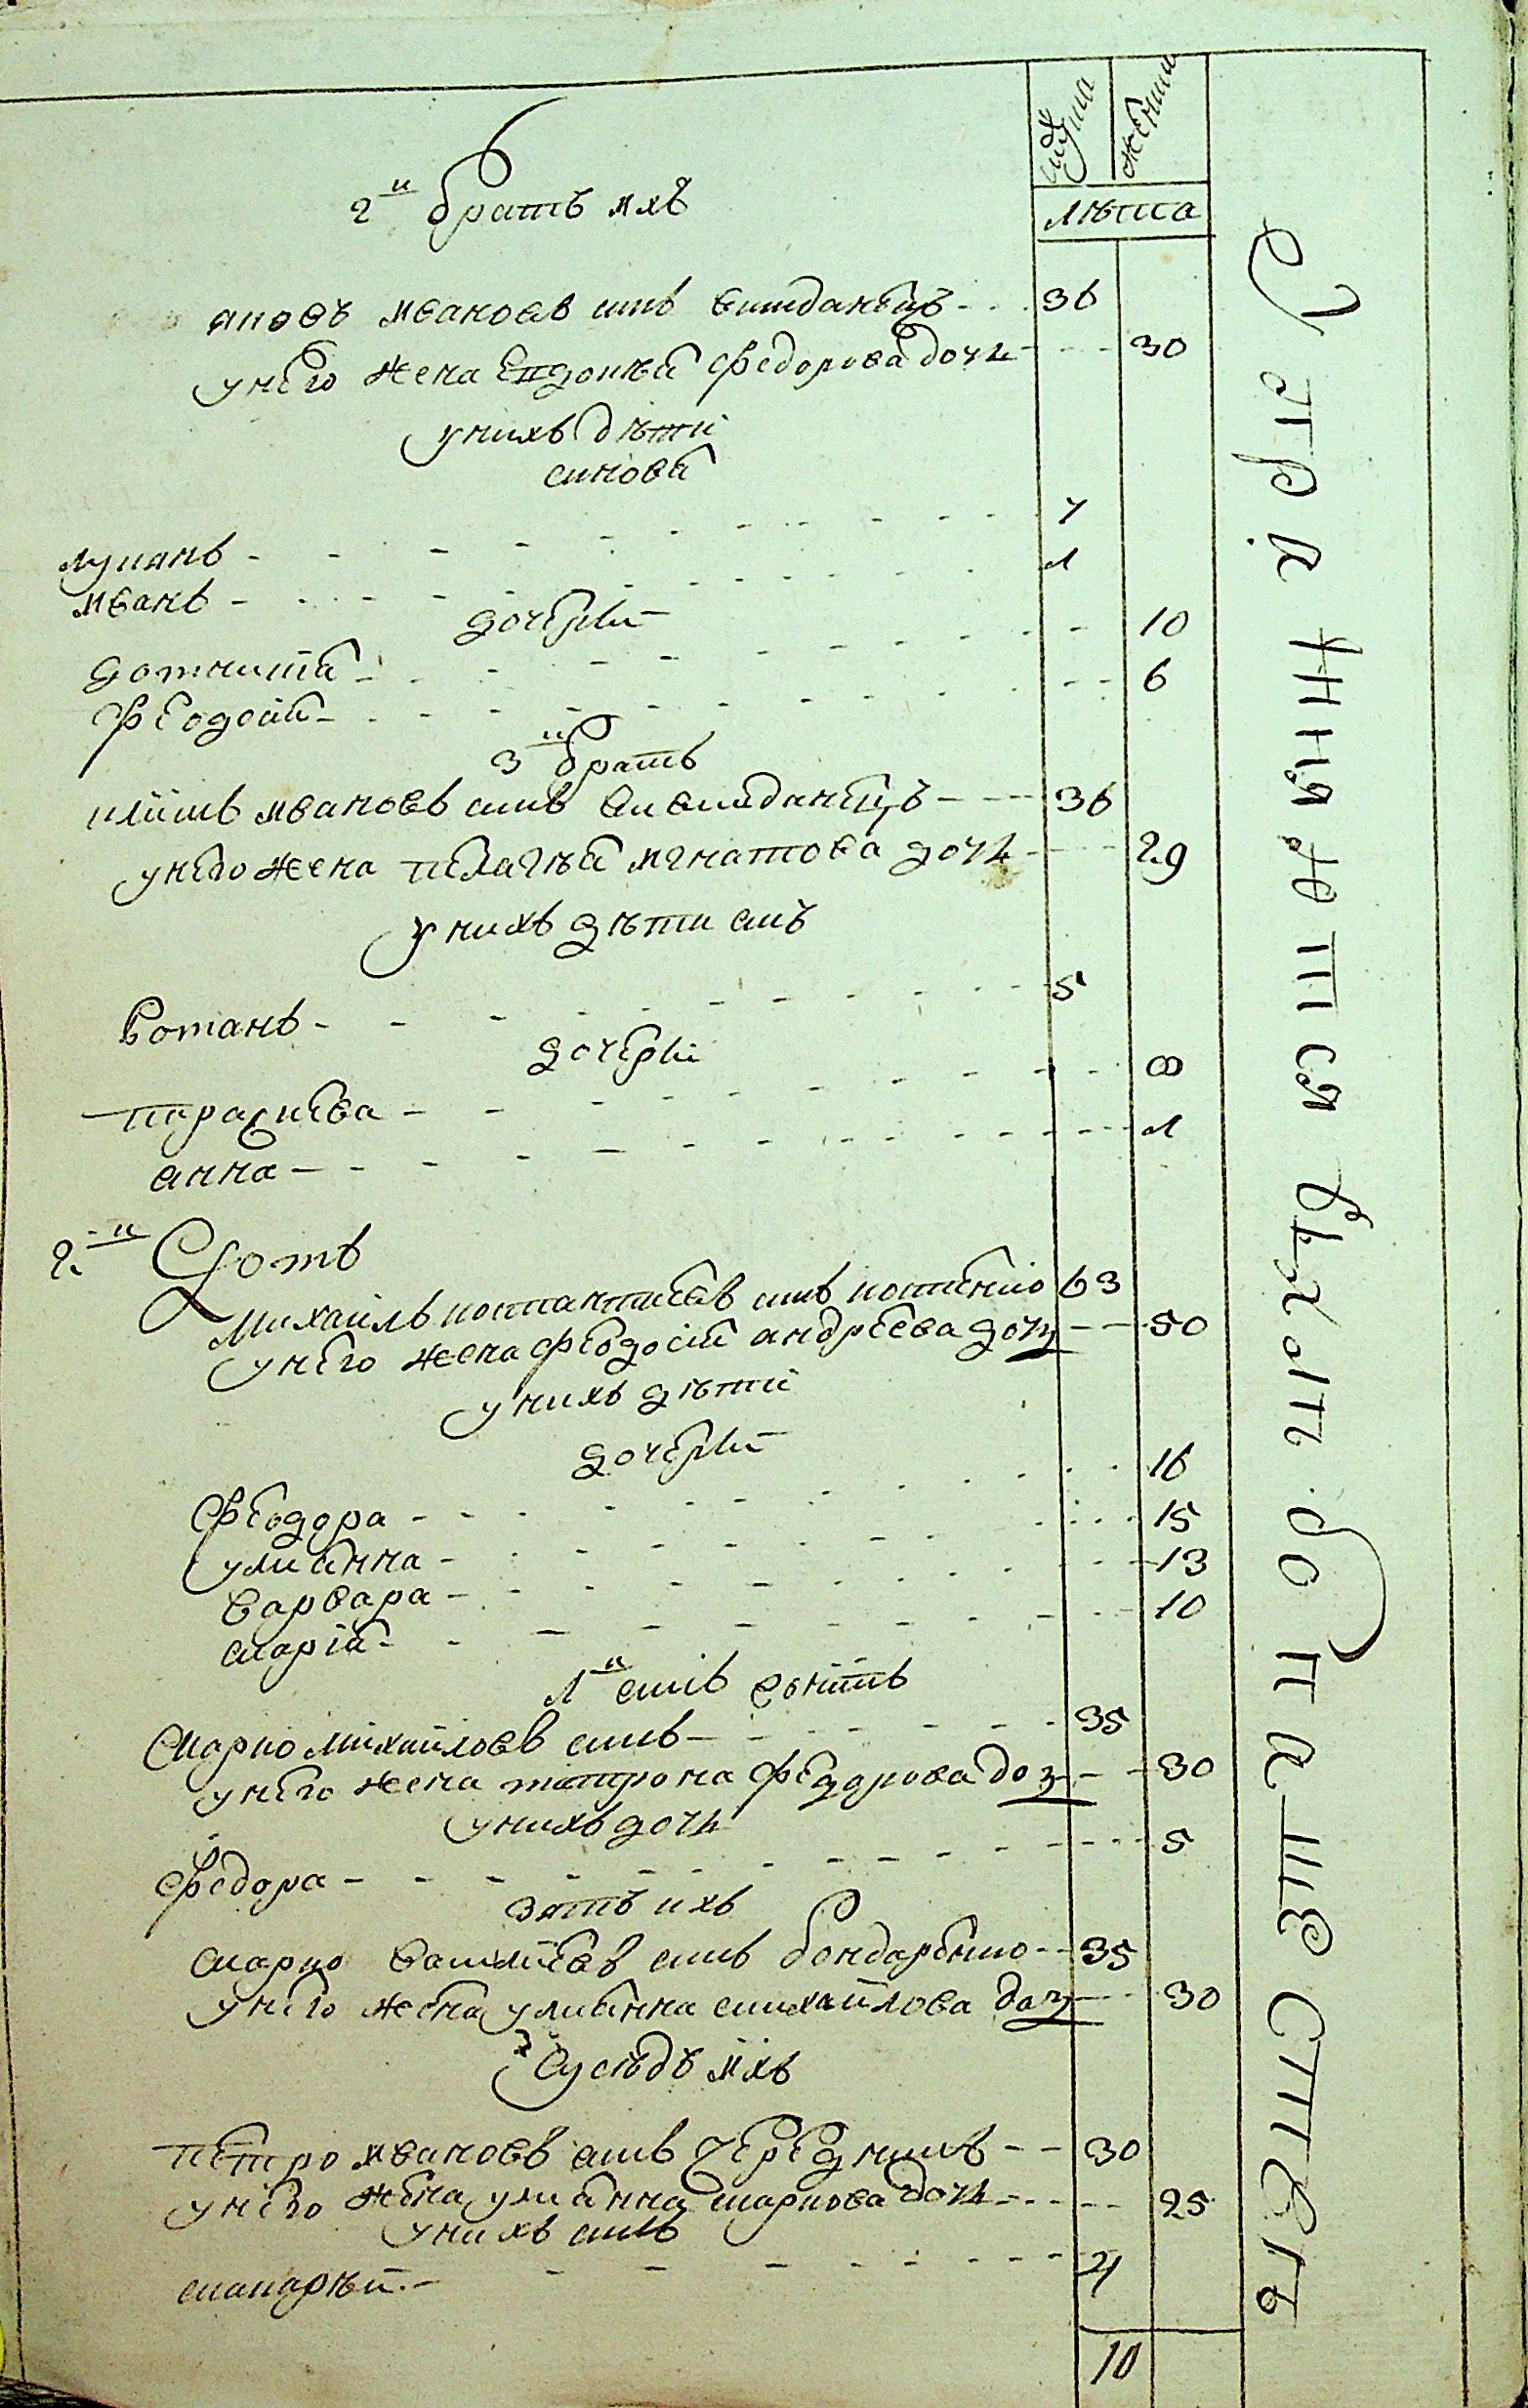 женска
лѣта
2й братъ ихъ
яковъ ивановъ синъ 36
у него жена Евдокия федорова дочь 30
у нихъ дѣти
синова
лукянъ 7
иванъ 1
дочерки
домникия 10
феодосия 6
3й братъ
климъ ивановъ синъ 36
у него жена пелагия игнатова дочь 29
у нихъ дѣти синъ
Романъ 5
дочерки
параскева 8
анна 1
2й Домъ
Михаилъ костантиевъ синъ 63
у него жена феодосия андреева дочъ 50
у нихъ дѣти
дочерки
феодора 16
улиянна 15
варвара 13
мария 10
1й синъ
Марко михайловъ синъ 35
у него жена мотрона федорова дочъ 30
у нихъ дочь
федора 5
зять ихъ
марко василиевъ синъ бондаренко 35
у него жена улиянна михайлова дочъ 30
Сусѣдъ ихъ
петро ивановъ синъ Чередникъ 30
у него жена улиянна маркова дочь 25
у нихъ синъ
макарѣй 4
10